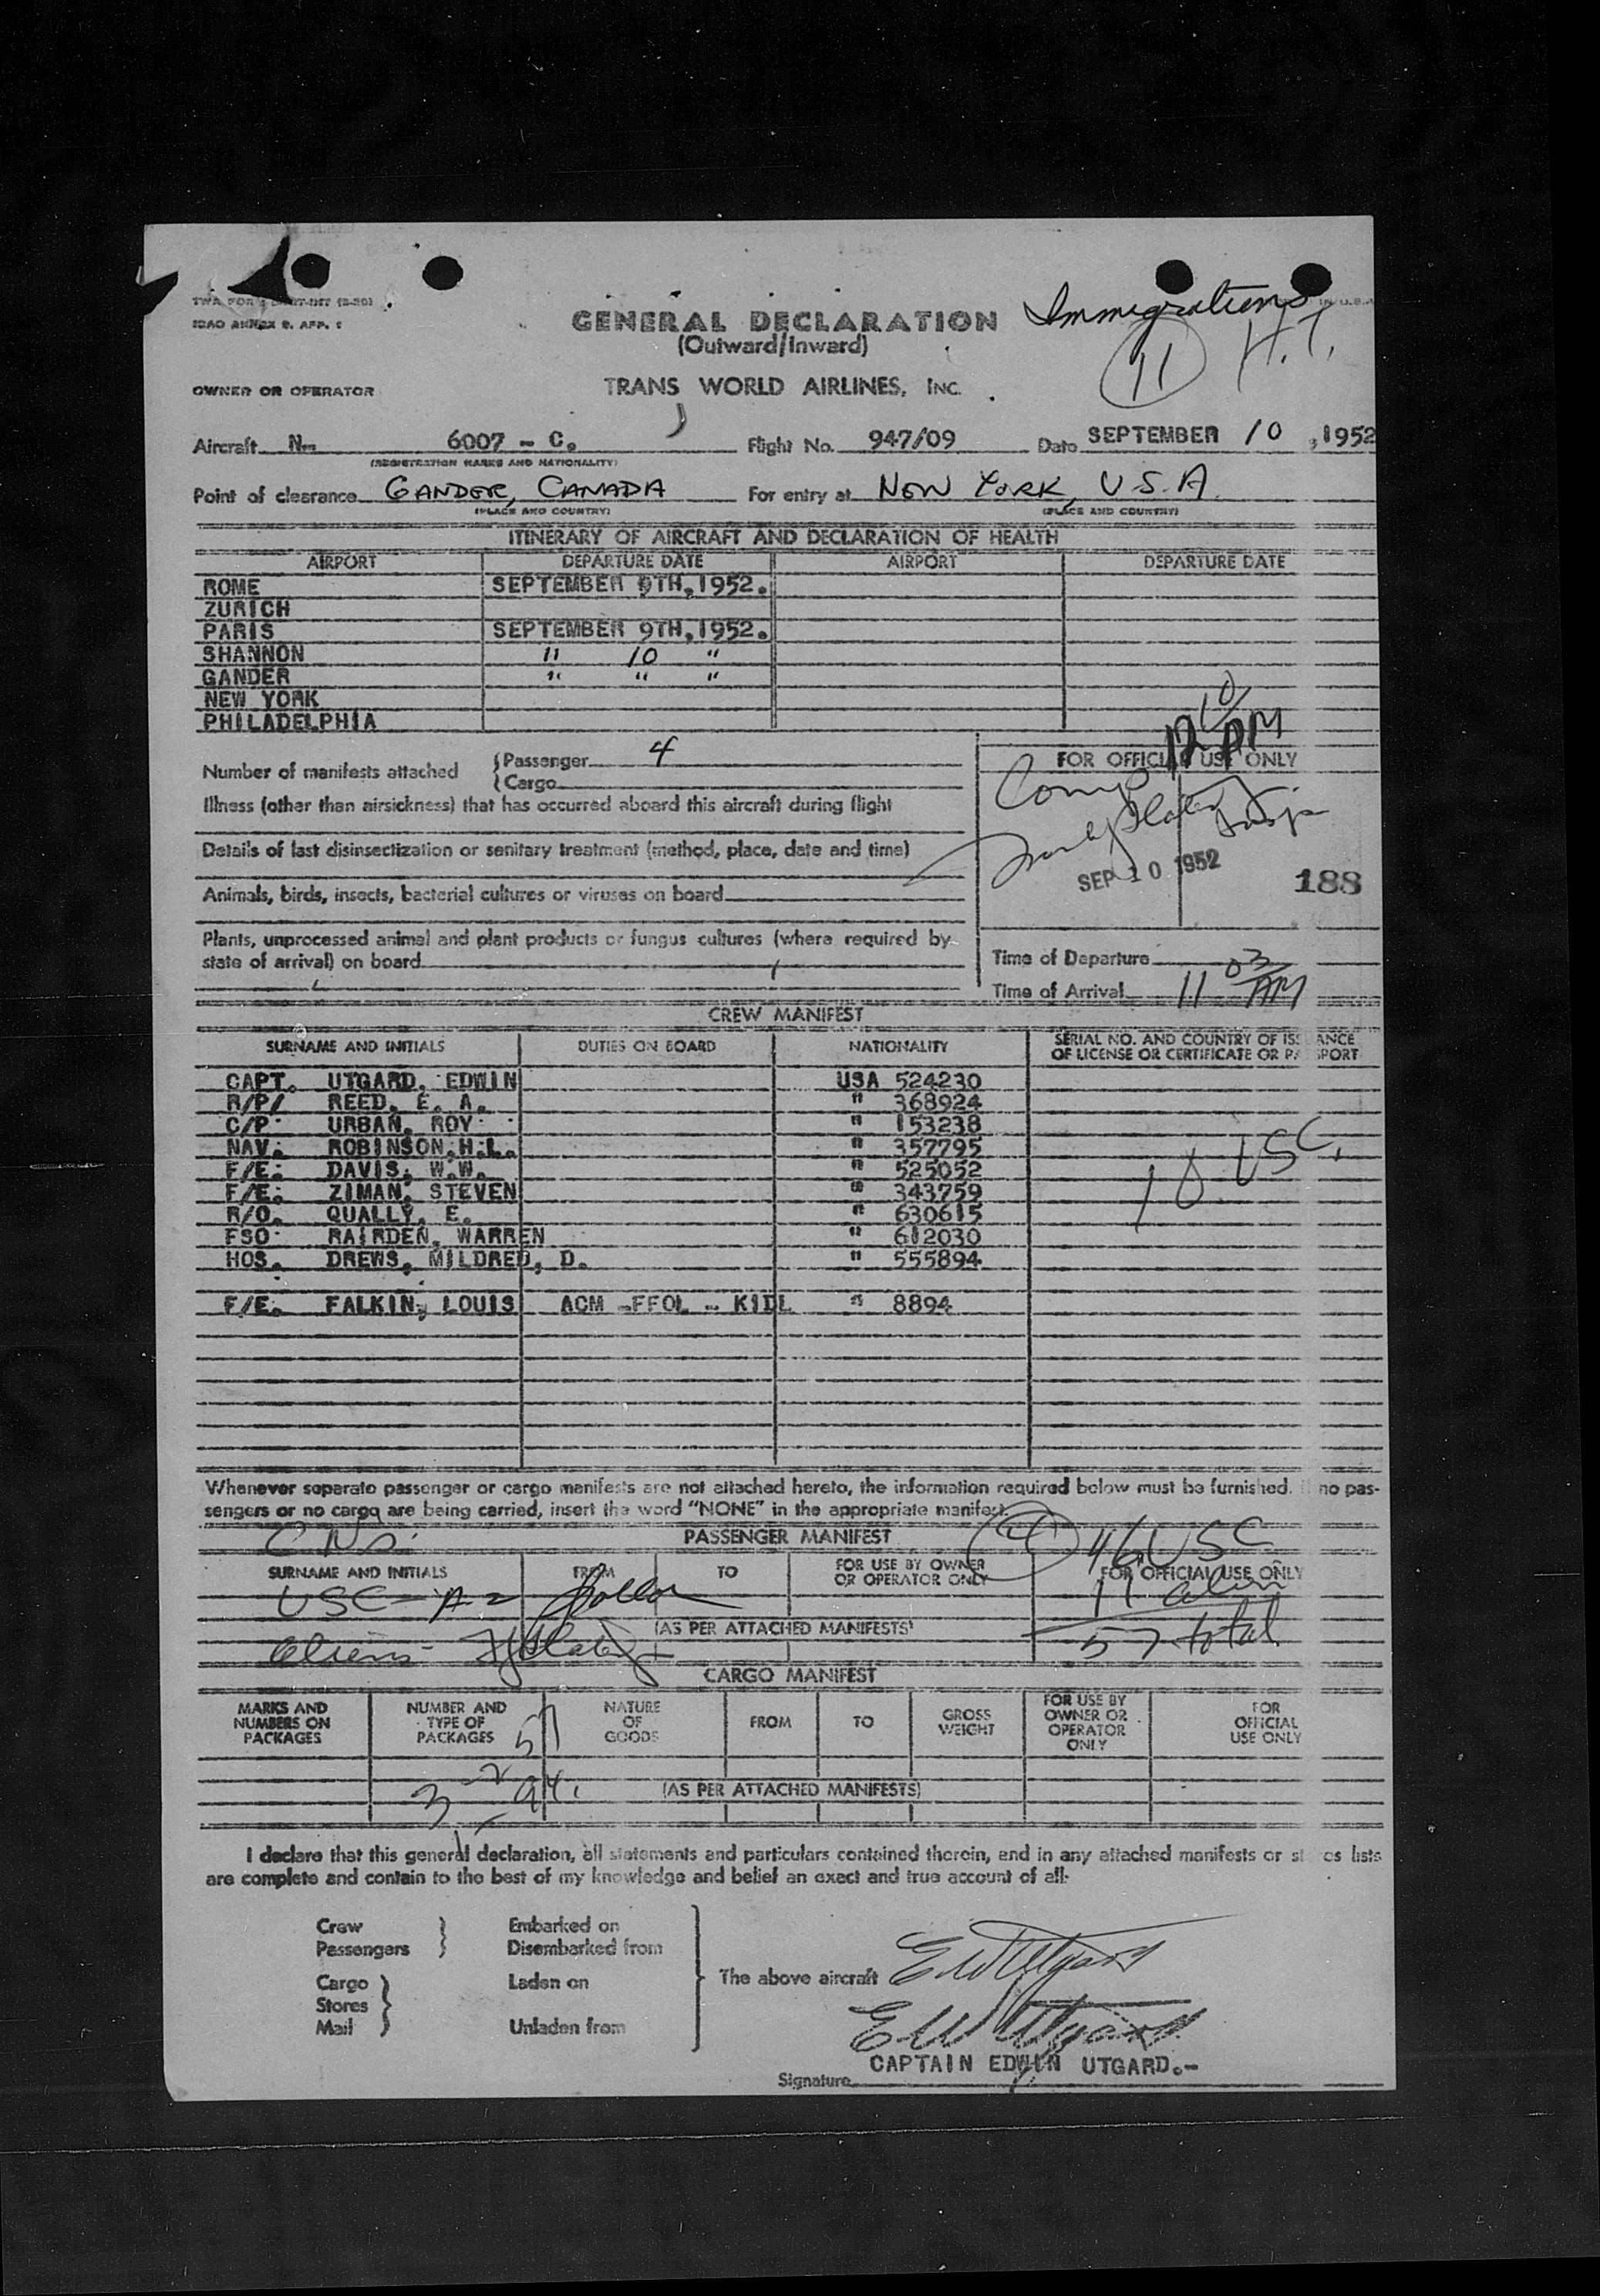 ICAO ANNEX 9, APP. 1
GENERAL DECLARATION
(Outward/Inward)
Immigration
11 H.T.
OWNER OR OPERATOR TRANS WORLD AIRLINES, INC.
Aircraft N- 6007 - C. Flight No. 947/09 Date SEPTEMBER 10, 1952
(REGISTRATION MARKS AND NATIONALITY)
Point of clearance GANDER, CANADA For entry at NEW YORK, U.S.A.
(PLACE AND COUNTRY) (PLACE AND COUNTRY)
ITINERARY OF AIRCRAFT AND DECLARATION OF HEALTH
AIRPORT DEPARTURE DATE AIRPORT DEPARTURE DATE
ROME SEPTEMBER 9TH, 1952.
ZURICH
PARIS SEPTEMBER 9TH, 1952.
SHANNON " 10 "
GANDER " " "
NEW YORK
PHILADELPHIA
12 10 PM
Number of manifests attached {Passenger 4
{Cargo
FOR OFFICIAL USE ONLY
Illness (other than airsickness) that has occurred aboard this aircraft during flight
Details of last disinsectization or sanitary treatment (method, place, date and time)
SEP 10 1952
188
Animals, birds, insects, bacterial cultures or viruses on board
Plants, unprocessed animal and plant products or fungus cultures (where required by
state of arrival) on board
Time of Departure
Time of Arrival 11 03 AM
CREW MANIFEST
SURNAME AND INITIALS DUTIES ON BOARD NATIONALITY SERIAL NO. AND COUNTRY OF ISSUANCE
OF LICENSE OR CERTIFICATE OR PASSPORT
CAPT. UTGARD, EDWIN USA 524230
R/P/ REED, E. A. " 368924
C/P URBAN, ROY " 153238
NAV. ROBINSON, H.L. " 357795
F/E. DAVIS, W.W. " 525052
F/E. ZIMAN, STEVEN " 343759
R/O. QUALLY, E. " 630615
FSO RAIRDEN, WARREN " 612030
HOS. DREWS, MILDRED, D. " 555894
10 USC.
F/E. FALKIN, LOUIS ACM -FFOL - KIDL " 8894
Whenever separate passenger or cargo manifests are not attached hereto, the information required below must be furnished. If no pas-
sengers or no cargo are being carried, insert the word "NONE" in the appropriate manifest.
PASSENGER MANIFEST
46 USC
SURNAME AND INITIALS FROM TO FOR USE BY OWNER
OR OPERATOR ONLY FOR OFFICIAL USE ONLY
11 alien
USC
(AS PER ATTACHED MANIFESTS)
57 total
Aliens
CARGO MANIFEST
MARKS AND
NUMBERS ON
PACKAGES
NUMBER AND
TYPE OF
PACKAGES
57
NATURE
OF
GOODS
FROM TO GROSS
WEIGHT
FOR USE BY
OWNER OR
OPERATOR
ONLY
FOR
OFFICIAL
USE ONLY
(AS PER ATTACHED MANIFESTS)
I declare that this general declaration, all statements and particulars contained therein, and in any attached manifests or stores lists
are complete and contain to the best of my knowledge and belief an exact and true account of all:
Crew } Embarked on
Passengers } Disembarked from
Cargo } Laden on
Stores }
Mail } Unladen from
The above aircraft E W Utgard
E W Utgard
CAPTAIN EDWIN UTGARD.-
Signature